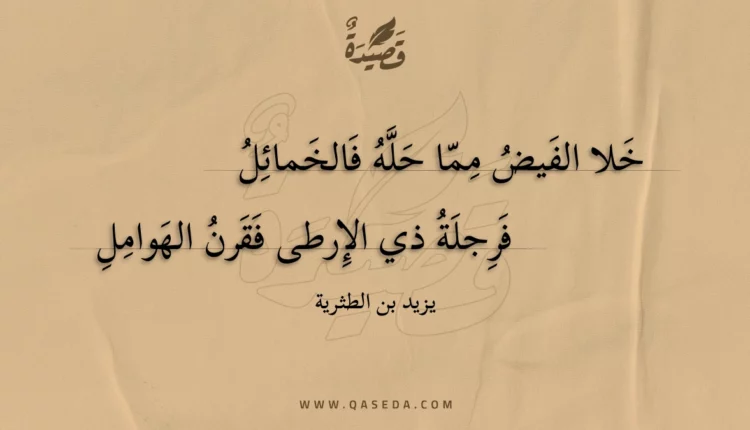 قَصِيدَةٌ
خَلا الفَيضُ مِمّا حَلَّهُ فَالخَمائِلُ
فَرِجلَةُ ذي الإِرطى فَقَرنُ الهَوامِلِ
يزيد بن الطثرية
WWW.QASEDA.COM